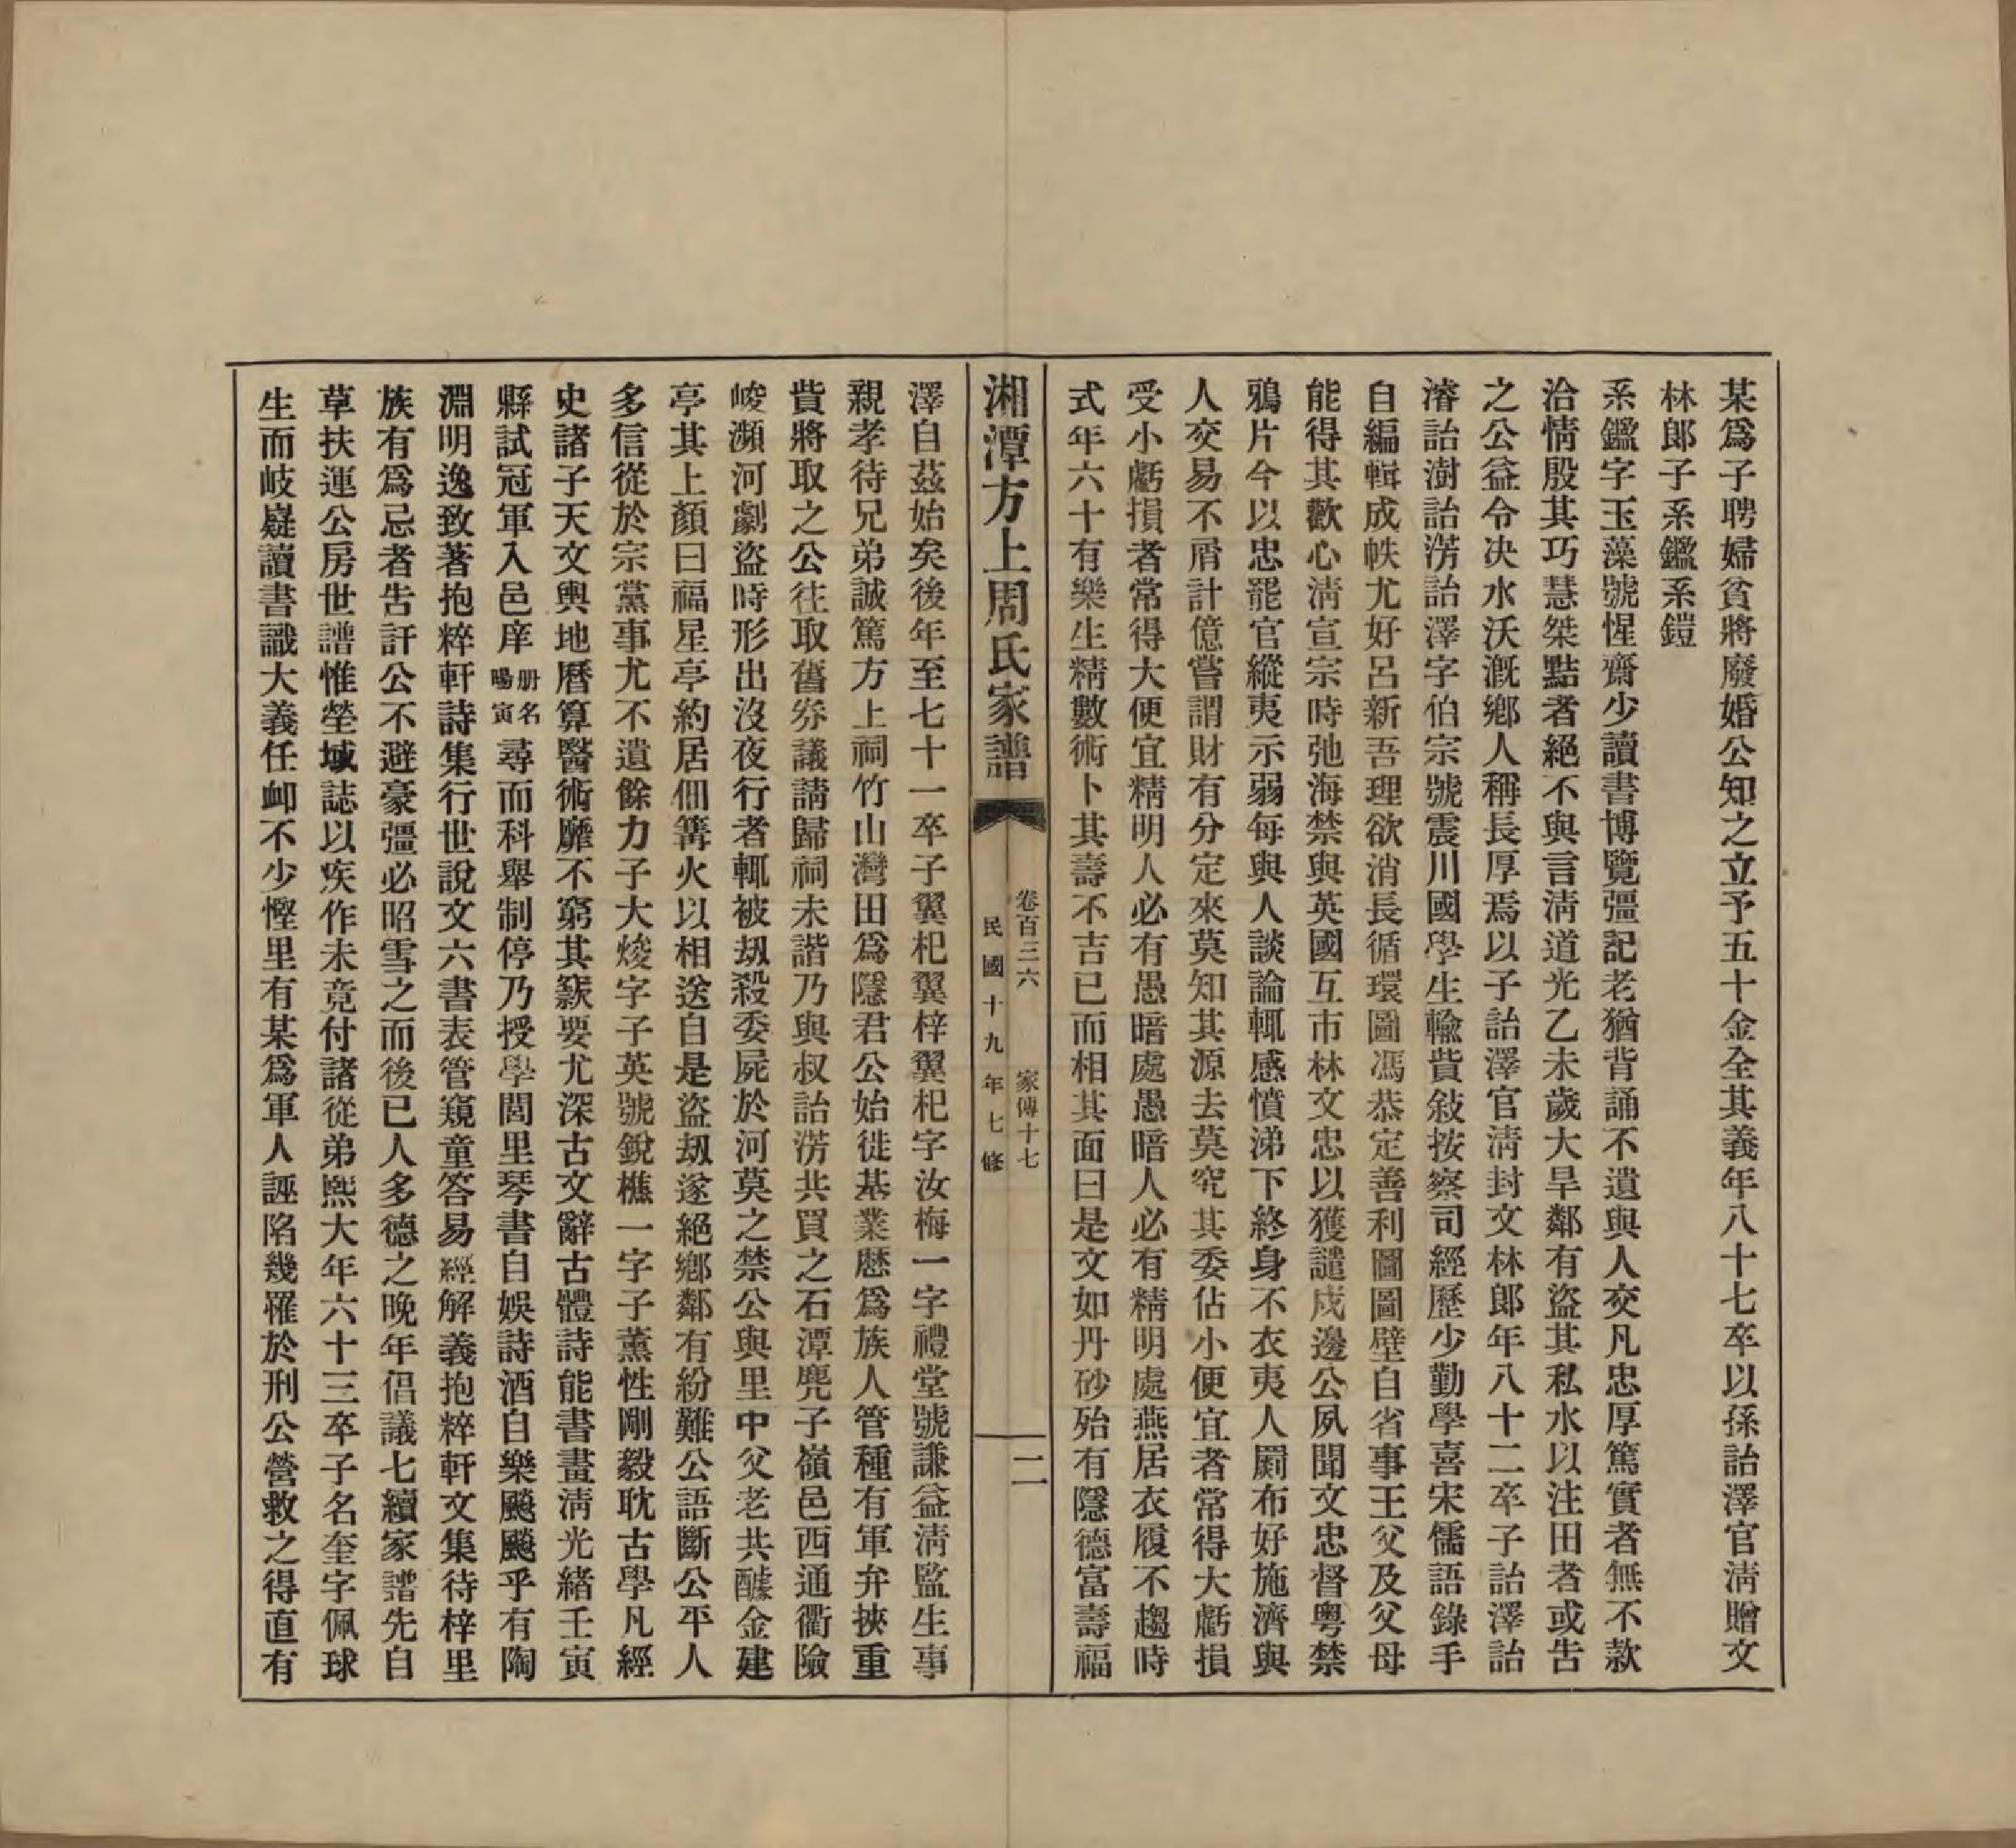 某爲子聘婦貧將廢婚公知之立予五十金全其義年八十七卒以孫詒澤官淸贈文
林郞子系鑑系鎧
系鑑字玉藻號惺齋少讀書博覽彊記老猶背誦不遺與人交凡忠厚篤實者無不款
洽情殷其巧慧桀黠者絕不與言淸道光乙未歲大旱鄰有盜其私水以注田者或告
之公益令決水沃漑鄕人稱長厚焉以子詒澤官淸封文林郞年八十二卒子詒澤詒
濬詒澍詒澇詒澤字伯宗號震川國學生輸貲敍按察司經歷少勤學喜宋儒語錄手
自編輯成帙尤好呂新吾理欲消長循環圖馮恭定善利圖圖壁自省事王父及父母
能得其歡心淸宣宗時弛海禁與英國互市林文忠以獲譴戍邊公夙聞文忠督粤禁
鴉片今以忠罷官縱夷示弱每與人談論輒感憤涕下終身不衣夷人罽布好施濟與
人交易不屑計億嘗謂財有分定來莫知其源去莫究其委佔小便宜者常得大虧損
受小虧損者常得大便宜精明人必有愚暗處愚暗人必有精明處燕居衣履不趨時
式年六十有樂生精數術卜其壽不吉已而相其面曰是文如丹砂殆有隱德富壽福
湘潭方上周氏家譜
卷百三六 家傳十七
民國十九年七修
二
澤自茲始矣後年至七十一卒子翼杞翼梓翼杞字汝梅一字禮堂號謙益淸監生事
親孝待兄弟誠篤方上祠竹山灣田爲隱君公始徙基業歷爲族人管種有軍弁挾重
貲將取之公往取舊劵議請歸祠未諧乃與叔詒澇共買之石潭麂子嶺邑西通衢險
峻瀕河劇盜時形出沒夜行者輒被刼殺委屍於河莫之禁公與里中父老共醵金建
亭其上顏曰福星亭約居佃篝火以相送自是盜刼遂絕鄕鄰有紛難公語斷公平人
多信從於宗黨事尤不遺餘力子大焌字子英號銳樵一字子薰性剛毅耽古學凡經
史諸子天文輿地曆算醫術靡不窮其窾要尤深古文辭古體詩能書畫淸光緖壬寅
縣試冠軍入邑庠册名暘寅尋而科舉制停乃授學閭里琴書自娛詩酒自樂飈飈乎有陶
淵明逸致著抱粹軒詩集行世說文六書表管窺童答易經解義抱粹軒文集待梓里
族有爲忌者吿訐公不避豪彊必昭雪之而後已人多德之晚年倡議七續家譜先自
草扶運公房世譜惟塋域誌以疾作未竟付諸從弟熙大年六十三卒子名奎字佩球
生而岐嶷讀書識大義任卹不少慳里有某爲軍人誣陷幾罹於刑公營救之得直有